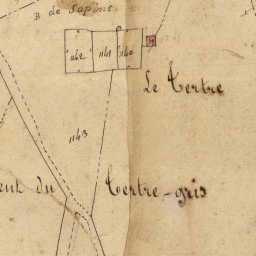 B de Sapins
1142 1141 1140
Le Tertre
1143
ent du Tertre-gris